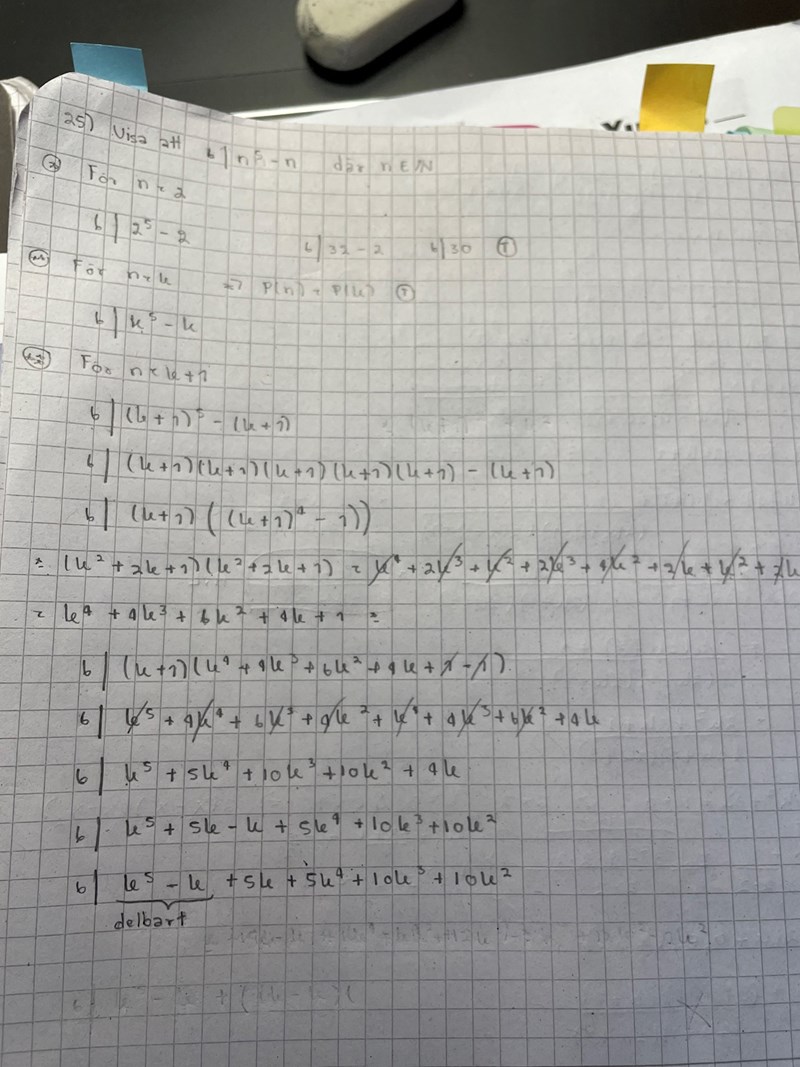 25) Visa att 6 | n⁵ - n där n ∈ N
För n = 2
6 | 2⁵ - 2 6 | 32 - 2 6 | 30 (T)
För n = k => P(n) = P(k) (T)
6 | k⁵ - k
För n = k + 1
6 | (k + 1)⁵ - (k + 1)
6 | (k + 1)(k + 1)(k + 1)(k + 1)(k + 1) - (k + 1)
6 | (k + 1)((k + 1)⁴ - 1))
= (k² + 2k + 1)(k² + 2k + 1) = k⁴ + 2k³ + k² + 2k³ + 4k² + 2k + k² + 2k
= k⁴ + 4k³ + 6k² + 4k + 1 =
6 | (k + 1)(k⁴ + 4k³ + 6k² + 4k + 1 - 1)
6 | k⁵ + 4k⁴ + 6k³ + 4k² + k⁴ + 4k³ + 6k² + 4k
6 | k⁵ + 5k⁴ + 10k³ + 10k² + 4k
6 | k⁵ + 5k - k + 5k⁴ + 10k³ + 10k²
6 | k⁵ - k + 5k + 5k⁴ + 10k³ + 10k²
delbart